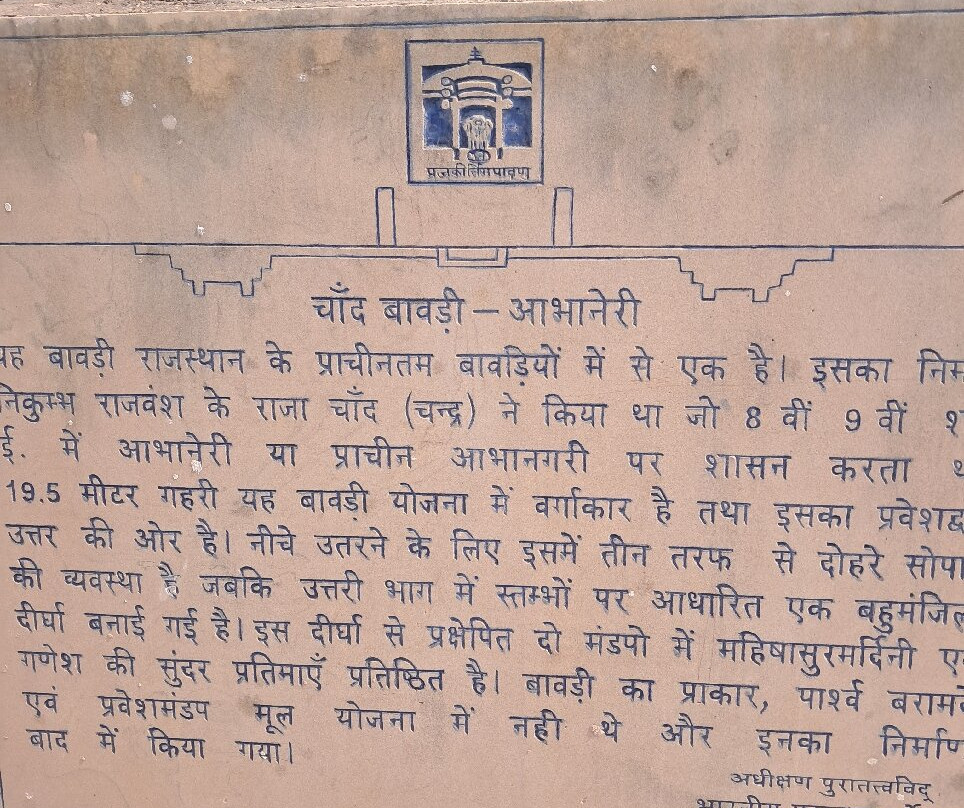 प्रत्नकीर्तिमपावृणु
चाँद बावड़ी – आभानेरी
यह बावड़ी राजस्थान के प्राचीनतम बावड़ियों में से एक है। इसका निर्म
निकुम्भ राजवंश के राजा चाँद (चन्द्र) ने किया था जो 8 वीं 9 वीं श
ई. में आभानेरी या प्राचीन आभानगरी पर शासन करता थ
19.5 मीटर गहरी यह बावड़ी योजना में वर्गाकार है तथा इसका प्रवेशद्व
उत्तर की ओर है। नीचे उतरने के लिए इसमें तीन तरफ से दोहरे सोपा
की व्यवस्था है जबकि उत्तरी भाग में स्तम्भों पर आधारित एक बहुमंजिल
दीर्घा बनाई गई है। इस दीर्घा से प्रक्षेपित दो मंडपो में महिषासुरमर्दिनी ए
गणेश की सुंदर प्रतिमाएँ प्रतिष्ठित है। बावड़ी का प्राकार, पार्श्व बरामद
एवं प्रवेशमंडप मूल योजना में नही थे और इनका निर्माण
बाद में किया गया।
अधीक्षण पुरातत्त्वविद्